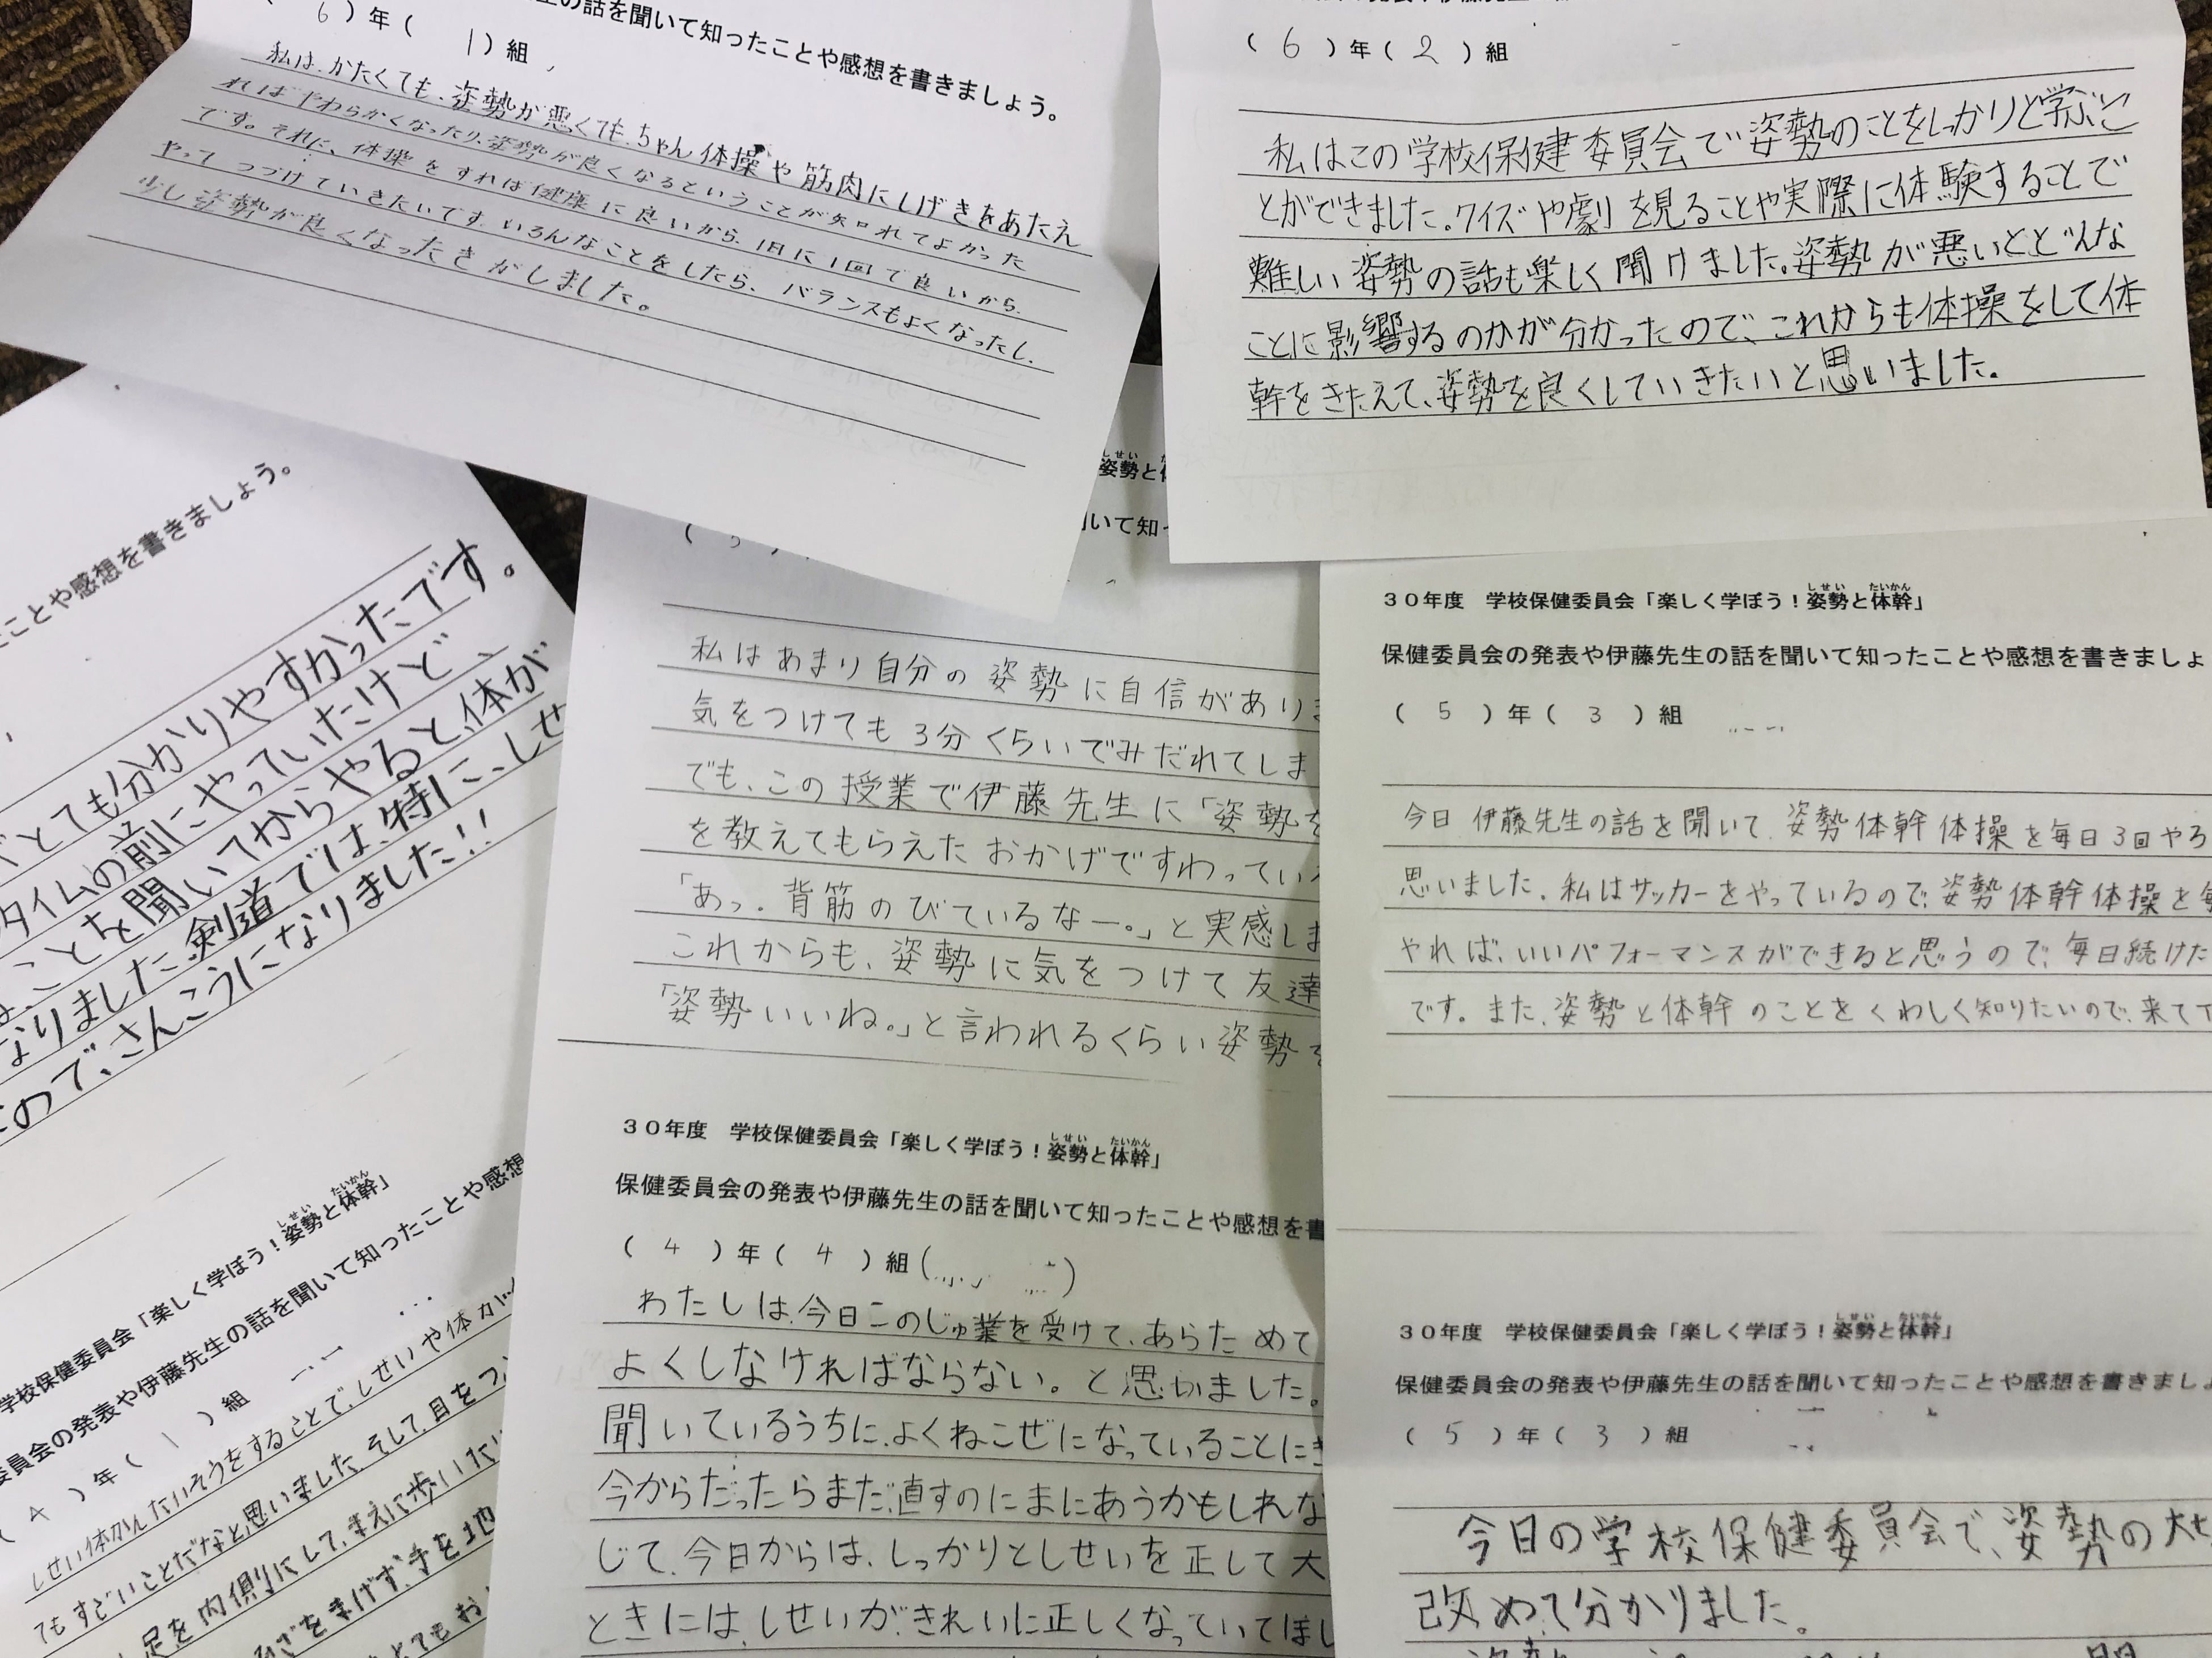 の話を聞いて知ったことや感想を書きましょう。
( 6 )年( 1 )組
私は、かたくても、姿勢が悪くても、ちゃん体操や筋肉にしげきをあたえ
ればやわらかくなったり、姿勢が良くなるということが知れてよかった
です。それに、体操をすれば健康に良いから、1日に1回で良いから、
やってつづけていきたいです。いろんなことをしたら、バランスもよくなったし、
少し姿勢が良くなったきがしました。
( 6 )年( 2 )組
私はこの学校保健委員会で姿勢のことをしっかりと学ぶこ
とができました。クイズや劇を見ることや実際に体験することで
難しい姿勢の話も楽しく聞けました。姿勢が悪いとどんな
ことに影響するのかが分かったので、これからも体操をして体
幹をきたえて、姿勢を良くしていきたいと思いました。
ことや感想を書きましょう。
とても分かりやすかったです。
タイムの前にやっていたけど、
ことを聞いてからやると、体が
なりました。剣道では、特に、しせ
ので、さんこうになりました!!
しせい
姿勢と
いて知
私はあまり自分の姿勢に自信があり
気をつけても3分くらいでみだれてしま
でも、この授業で伊藤先生に「姿勢
を教えてもらえたおかげですわってい
「あっ、背筋のびているなー。」と実感し
これからも、姿勢に気をつけて友達
「姿勢いいね。」と言われるくらい姿勢
30年度 学校保健委員会「楽しく学ぼう!姿勢と体幹」
しせい たいかん
保健委員会の発表や伊藤先生の話を聞いて知ったことや感想を書きましょ
( 5 )年( 3 )組
今日伊藤先生の話を聞いて、姿勢体幹体操を毎日3回やろ
思いました。私はサッカーをやっているので、姿勢体幹体操を
やれば、いいパフォーマンスができると思うので、毎日続けた
です。また、姿勢と体幹のことをくわしく知りたいので、来て下
学校保健委員会「楽しく学ぼう!姿勢と体幹」
しせい たいかん
委員会の発表や伊藤先生の話を聞いて知ったことや感想
( 4 )年( 1 )組
しせい体かんたいそうをすることで、しせいや体が
てもすごいことだなと思いました。そして、目をつ
足を内側にして、まえに歩いたり
ざをまげず、手を地
とてもお
30年度 学校保健委員会「楽しく学ぼう!姿勢と体幹」
しせい たいかん
保健委員会の発表や伊藤先生の話を聞いて知ったことや感想を書
( 4 )年( 4 )組
わたしは、今日このじゅ業を受けて、あらためて
よくしなければならない。と思いました。
聞いているうちに、よくねこぜになっていることに
今からだったらまだ、直すのにまにあうかもしれな
じて、今日からは、しっかりとしせいを正して大
ときには、しせいが、きれいに正しくなっていてほし
30年度 学校保健委員会「楽しく学ぼう!姿勢と体幹」
しせい たいかん
保健委員会の発表や伊藤先生の話を聞いて知ったことや感想を書きまし
( 5 )年( 3 )組
今日の学校保健委員会で、姿勢の大
改めて分かりました。